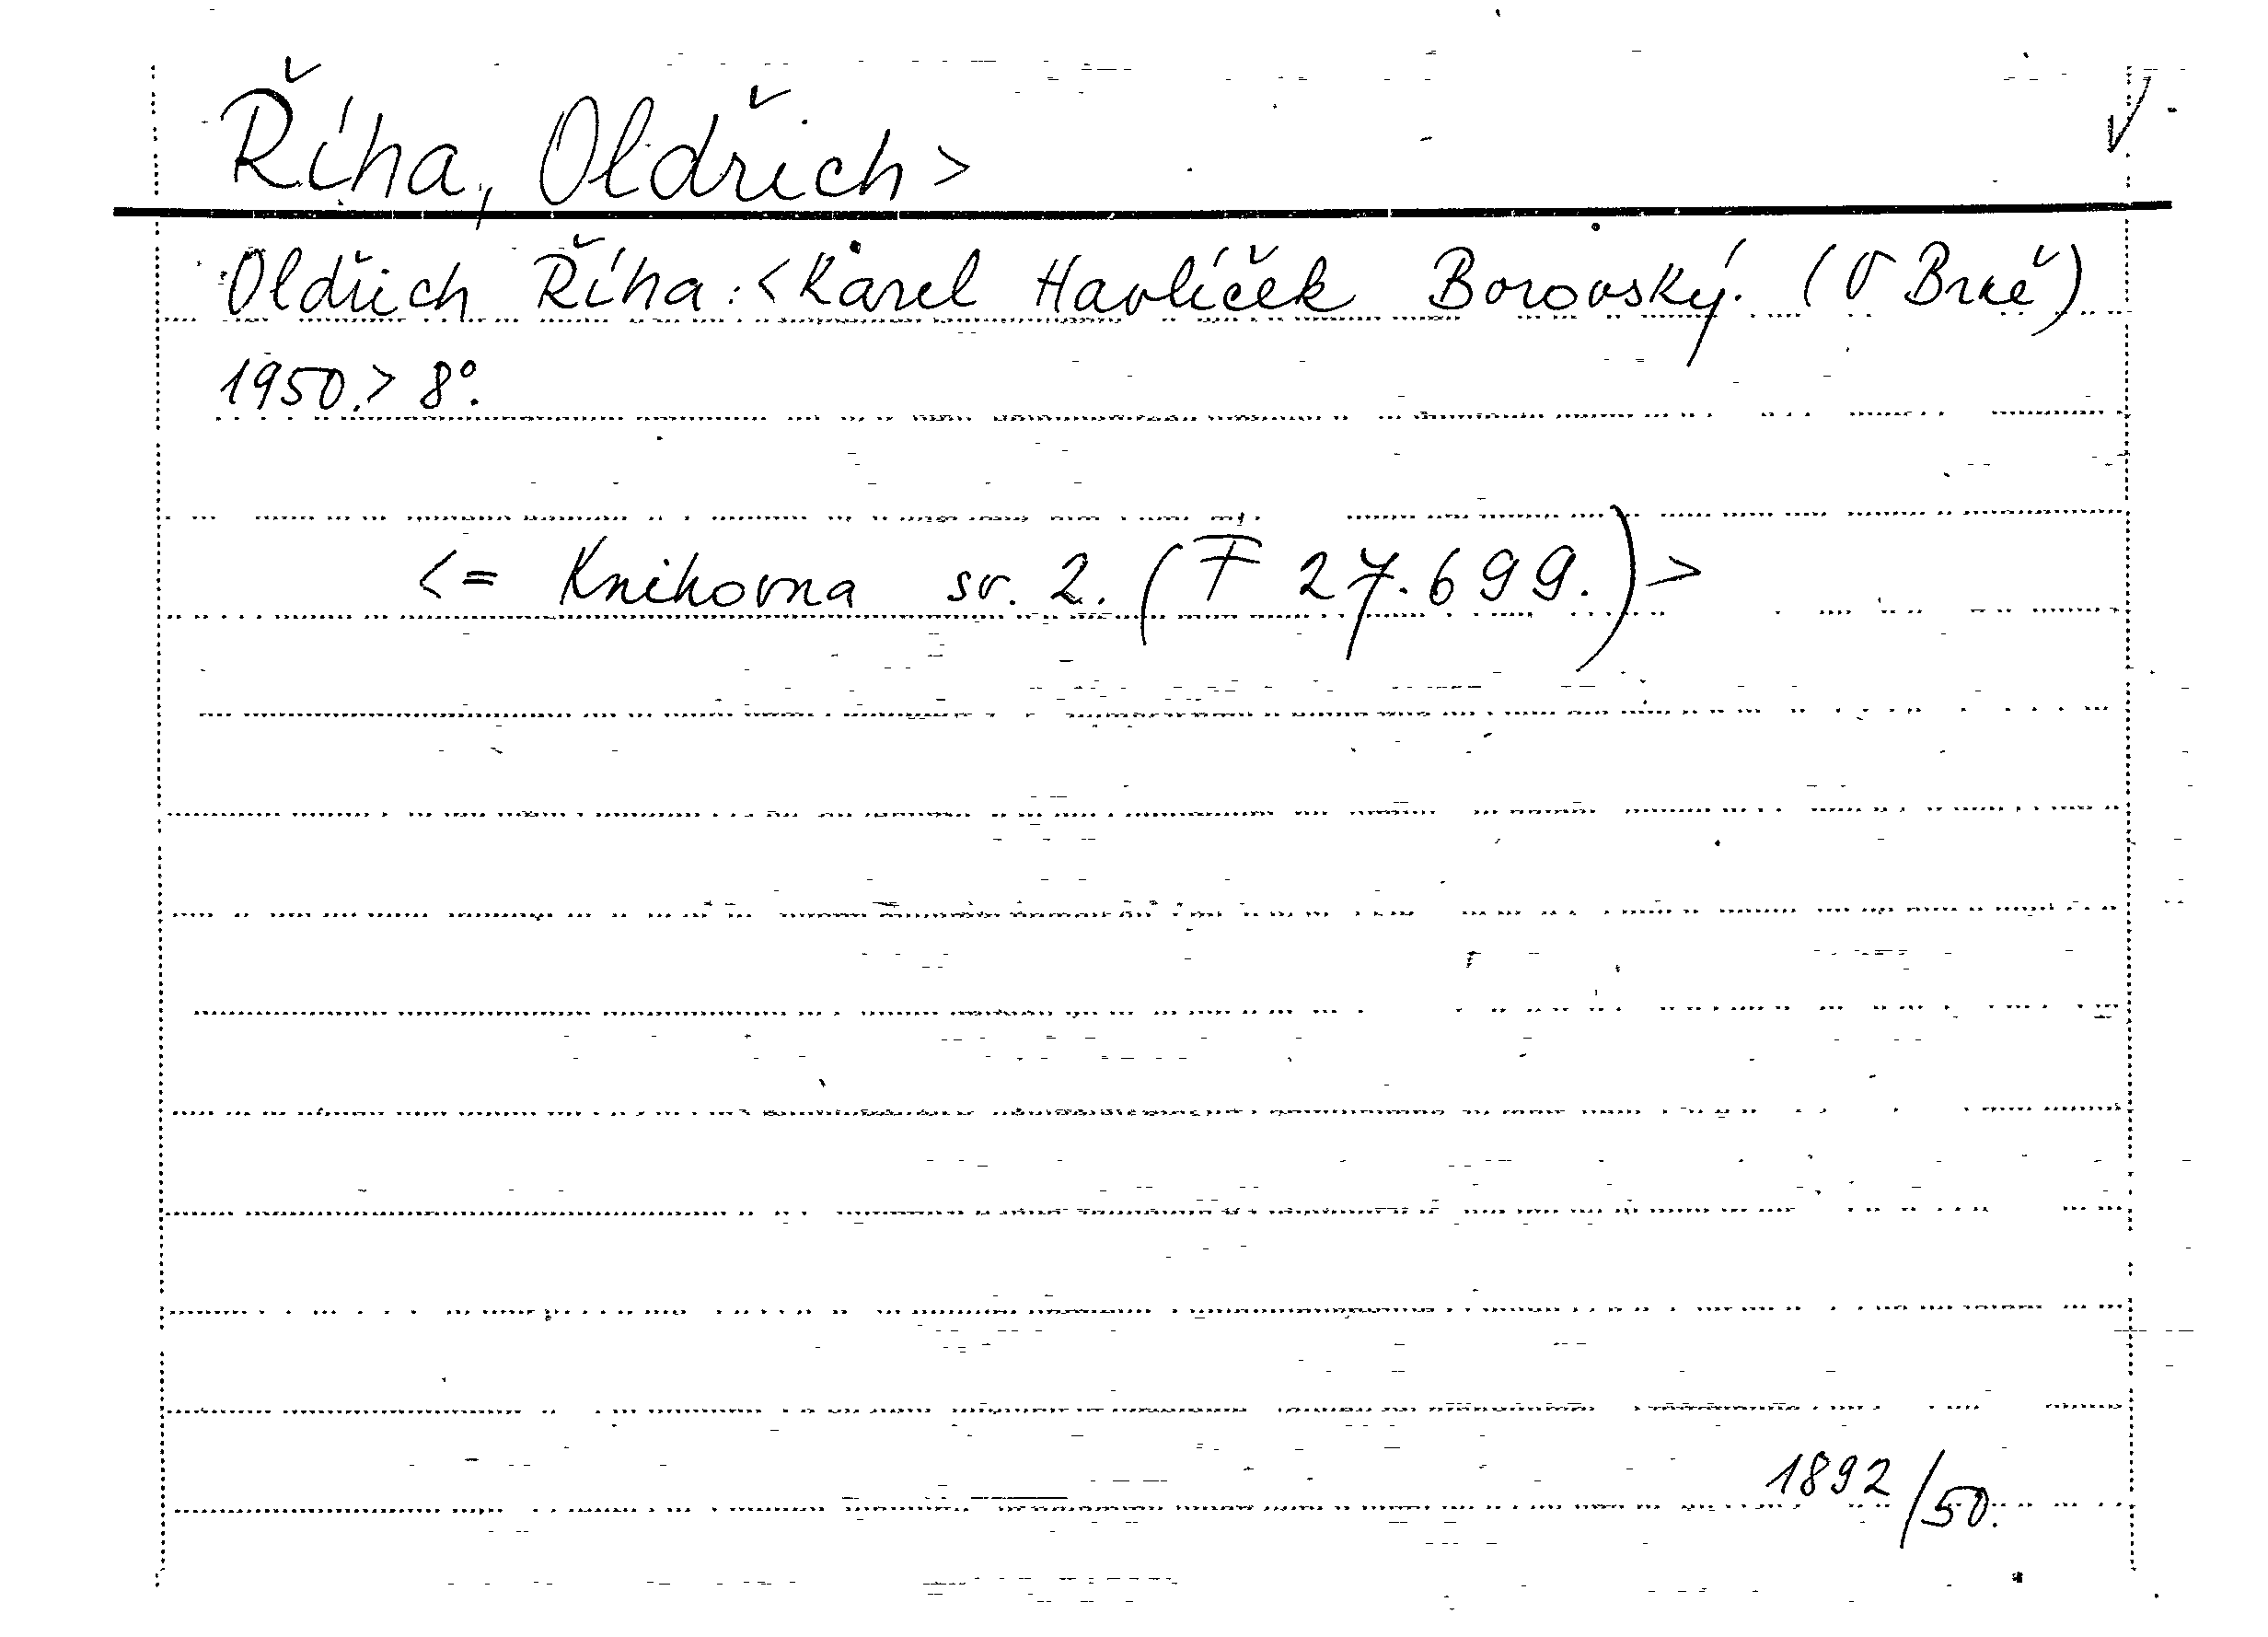 Říha, Oldřich>
Oldřich Říha: <Karel Havlíček Borovský. (V Brně)
1950.> 8°.
<= Knihovna sv. 2. (F 27.699.)>
1892/50.